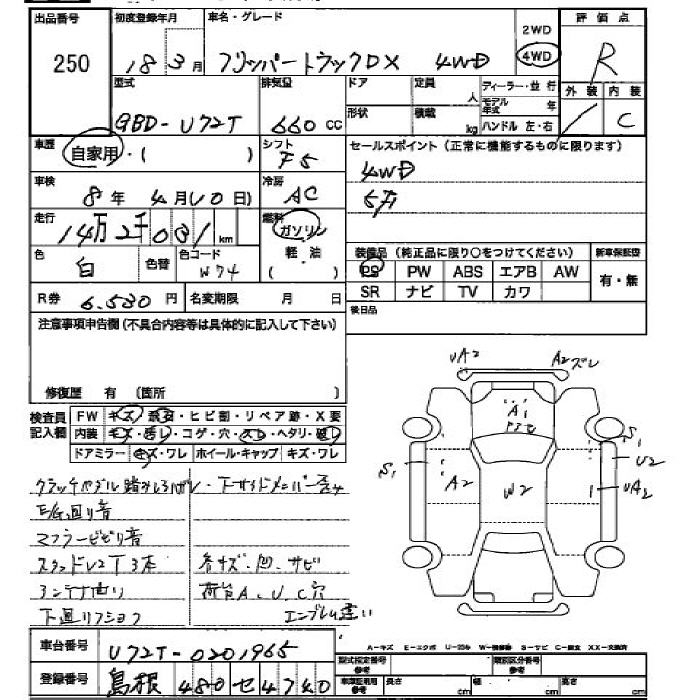 出品番号 初度登録年月 車名・グレード 2WD 評価点
250 18 3月 フリッパートラックDX 4WD 4WD R
型式 排気量 ドア 定員 人 ディーラー・並行 外装 内装
GBD-U72T 660cc 形状 積載 kg モデル年式 年 ハンドル 左・右 / C
車歴 自家用・( ) シフト F5 セールスポイント(正常に機能するものに限ります)
車検 8年 4月(10日) 冷房 AC 4WD
走行 14万2千031km 燃料 ガソリン 5万
色 白 色替 色コード W74 軽油 ( ) 装備品(純正品に限り〇をつけてください) 新車保証書
PS PW ABS エアB AW 有・無
R券 6.530円 名変期限 月 日 SR ナビ TV カワ
注意事項申告欄(不具合内容等は具体的に記入して下さい) 後日品
修復歴 有 〔箇所 〕
検査員記入欄 FW キズ・凹・ヒビ割・リペア跡・X要
内装 キズ・汚レ・コゲ・穴・スレ・ヘタリ・破レ
ドアミラー キズ・ワレ ホイール・キャップ キズ・ワレ
UA2 A2ズレ
A1
S1 A2 W2 S1 U2 UA2
クラッチペダル踏みしろ 下サイドメンバー
E/G廻り音
マフラービビリ音
スタッドレス2T3本 各キズ.凹.サビ
アンテナ曲り 荷台A.U.C穴
下廻り エンブレム違い
車台番号 U72T-0201965
登録番号 島根 480 セ 4740
A-キズ E-エクボ U-凹み W-補修跡 S-サビ C-腐食 XX-交換済
型式指定番号 参考 類別区分番号 参考
車庫証明用 参考 長さ cm 幅 cm 高さ cm